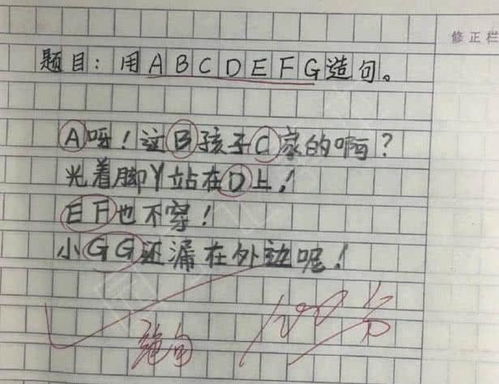 修正栏
题目：用ABCDEFG造句。
A呀！这B孩子C家的啊？
光着脚丫站在D上！
EF也不穿！
小GG还漏在外边呢！
100分